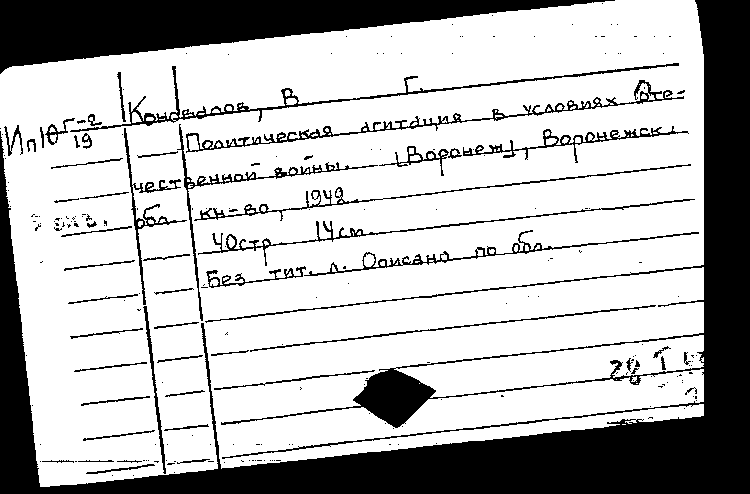 Коновалов, В Г.
Ип10 Г-2/19
Политическая агитация в условиях Оте-
чественной войны. [Воронеж], Воронежск.
обл. кн-во, 1942.
40стр. 14см.
Без тит. л. Описано по обл.
28 I